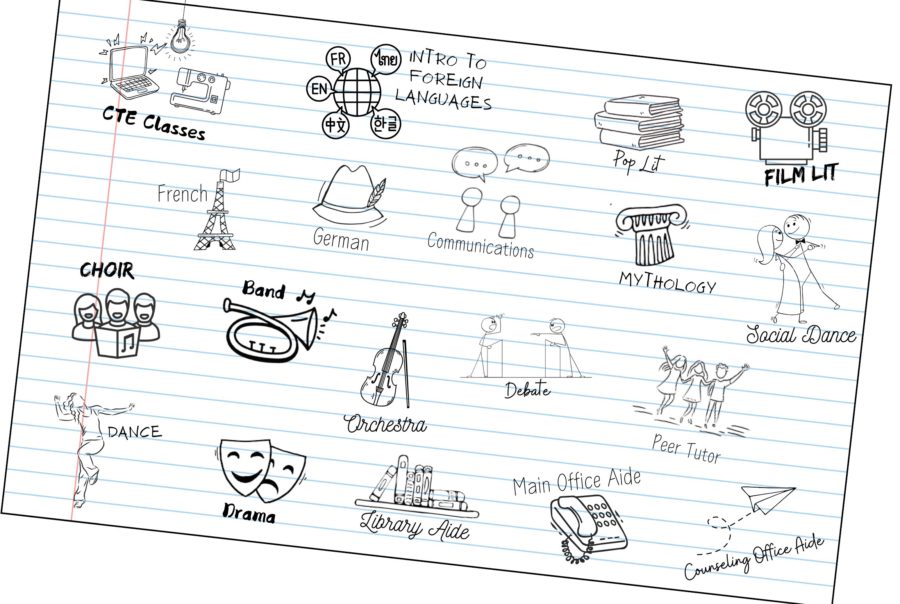 FR
ไทย
EN
中文
한글
INTRO TO
FOREIGN
LANGUAGES
CTE Classes
Pop Lit
FILM LIT
French
German
Communications
MYTHOLOGY
Social Dance
CHOIR
Band
Orchestra
Debate
Peer Tutor
DANCE
Drama
Library Aide
Main Office Aide
Counseling Office Aide